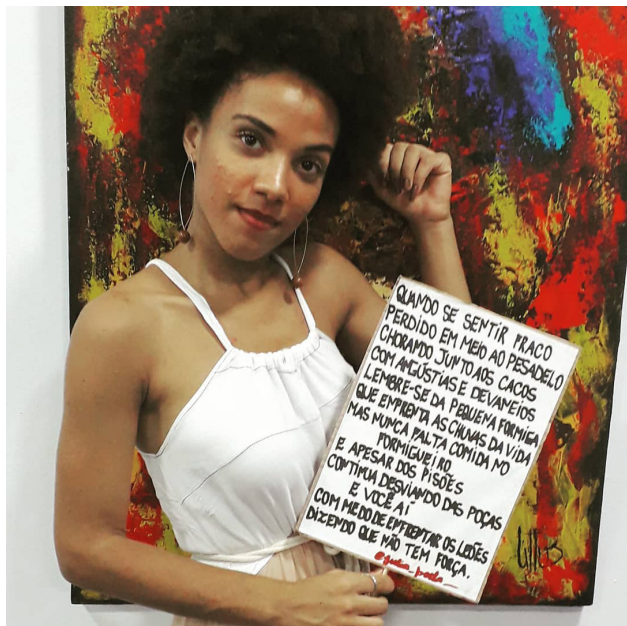 QUANDO SE SENTIR FRACO
PERDIDO EM MEIO AO PESADELO
CHORANDO JUNTO AOS CACOS
COM ANGÚSTIAS E DEVANEIOS
LEMBRE-SE DA PEQUENA FORMIGA
QUE ENFRENTA AS CHUVAS DA VIDA
MAS NUNCA FALTA COMIDA NO
FORMIGUEIRO
E APESAR DOS PISÕES
CONTINUA DESVIANDO DAS POÇAS
E VOCÊ AÍ
COM MEDO DE ENFRENTAR OS LEÕES
DIZENDO QUE NÃO TEM FORÇA.